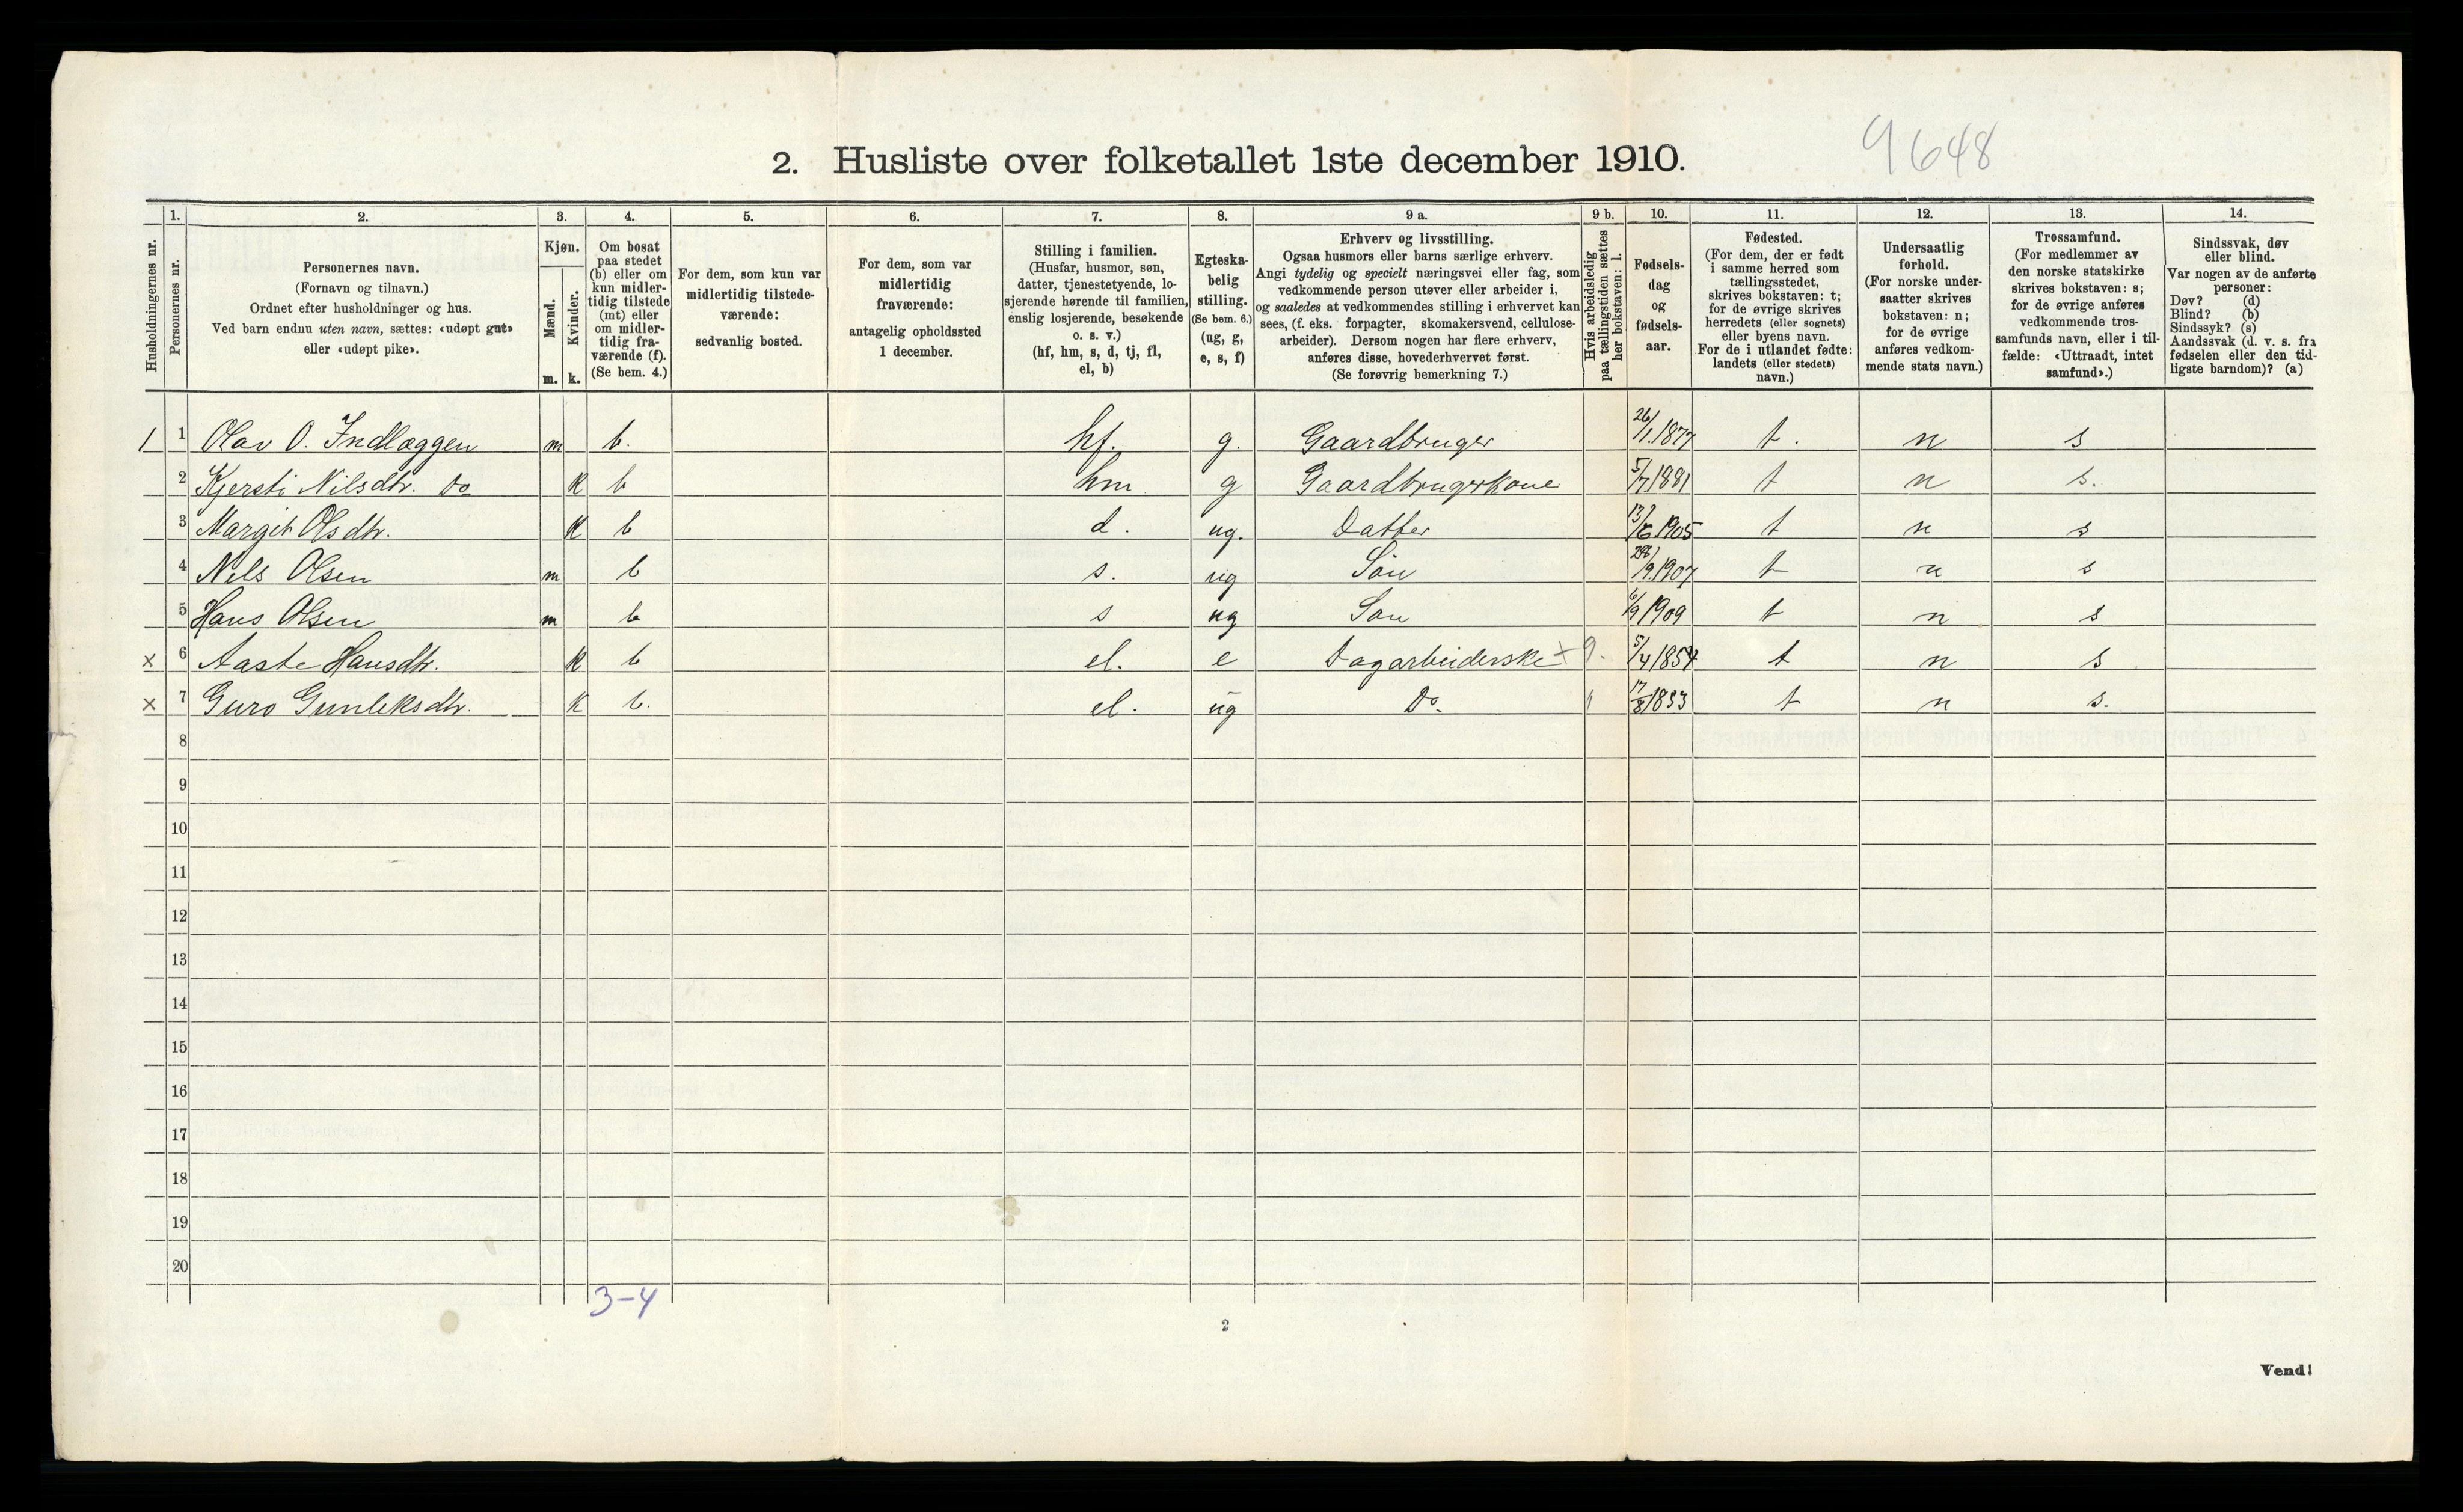 9648
2. Husliste over folketallet 1ste december 1910.
Husholdningernes nr.
1. Personernes nr.
2. Personernes navn.
(Fornavn og tilnavn.)
Ordnet efter husholdninger og hus.
Ved barn endnu uten navn, sættes: «udøpt gut»
eller «udøpt pike».
3. Kjøn.
Mænd. m.
Kvinder. k.
4. Om bosat
paa stedet
(b) eller om
kun midler-
tidig tilstede
(mt) eller
om midler-
tidig fra-
værende (f).
(Se bem. 4.)
5. For dem, som kun var
midlertidig tilstede-
værende:
sedvanlig bosted.
6. For dem, som var
midlertidig
fraværende:
antagelig opholdssted
1 december.
7. Stilling i familien.
(Husfar, husmor, søn,
datter, tjenestetyende, lo-
sjerende hørende til familien,
enslig losjerende, besøkende
o. s. v.)
(hf, hm, s, d, tj, fl,
el, b)
8. Egteska-
belig
stilling.
(Se bem. 6.)
(ug, g,
e, s, f)
9 a. Erhverv og livsstilling.
Ogsaa husmors eller barns særlige erhverv.
Angi tydelig og specielt næringsvei eller fag, som
vedkommende person utøver eller arbeider i,
og saaledes at vedkommendes stilling i erhvervet kan
sees, (f. eks. forpagter, skomakersvend, cellulose-
arbeider). Dersom nogen har flere erhverv,
anføres disse, hovederhvervet først.
(Se forøvrig bemerkning 7.)
9 b. Hvis arbeidsledig
paa tællingstiden sættes
her bokstaven: l.
10. Fødsels-
dag
og
fødsels-
aar.
11. Fødested.
(For dem, der er født
i samme herred som
tællingsstedet,
skrives bokstaven: t;
for de øvrige skrives
herredets (eller sognets)
eller byens navn.
For de i utlandet fødte:
landets (eller stedets)
navn.)
12. Undersaatlig
forhold.
(For norske under-
saatter skrives
bokstaven: n;
for de øvrige
anføres vedkom-
mende stats navn.)
13. Trossamfund.
(For medlemmer av
den norske statskirke
skrives bokstaven: s;
for de øvrige anføres
vedkommende tros-
samfunds navn, eller i til-
fælde: «Uttraadt, intet
samfund».)
14. Sindssvak, døv
eller blind.
Var nogen av de anførte
personer:
Døv? (d)
Blind? (b)
Sindssyk? (s)
Aandssvak (d. v. s. fra
fødselen eller den tid-
ligste barndom)? (a)
1 1 Olav O. Indlæggen m b. hf. g. Gaardbruger 26/1.1877 t. n s
2 Kjersti Nilsdtr. Do k b hm g Gaardbrugerkone 5/7 1881 t n s.
3 Margit Olsdtr. k b d. ug. Datter 13/6 1905 t n s
4 Nels Olsen m b s. ug Søn /9.1907 t n s
5 Hans Olsen m b s ug Søn 6/9 1909 t n s
x 6 Aaste Hansdtr. k b el. e Dagarbeiderske 5/4 1854 t n s
x 7 Guro Gunleksdtr. k b. el. ug Do. 17/8 1833 t n s.
8
9
10
11
12
13
14
15
16
17
18
19
20
3-4
2
Vend!